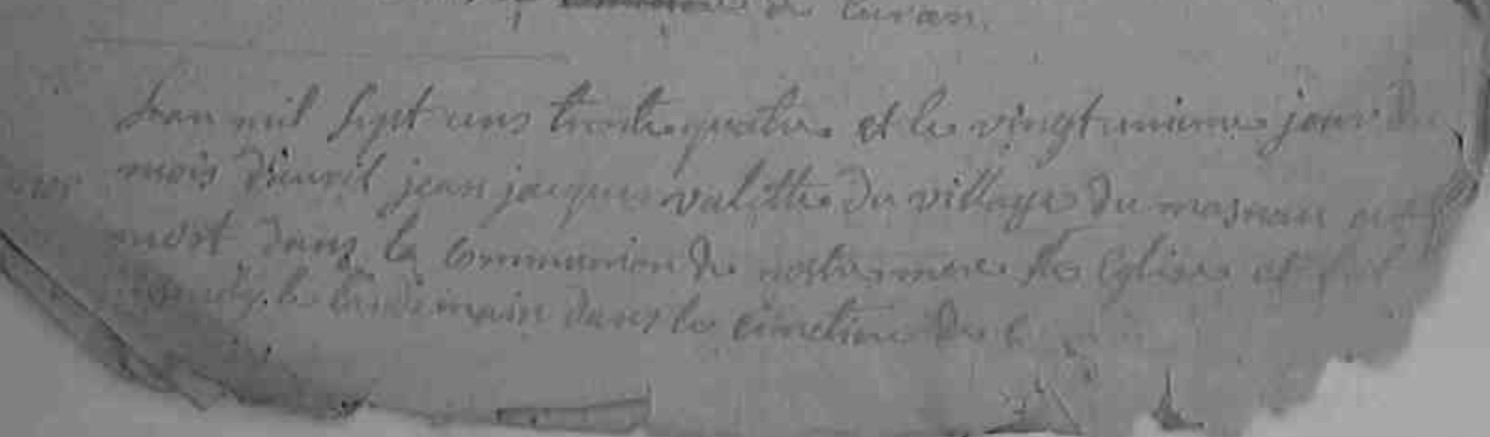 de Curan.
Lean mil sept cens trente quatre et le vingtunieme jour du
mois d'auril jean jacques valette du village du masnau
mort dans la Communion de nostre mere Ste Eglise et fut
le lendemain dans le cimetiere de